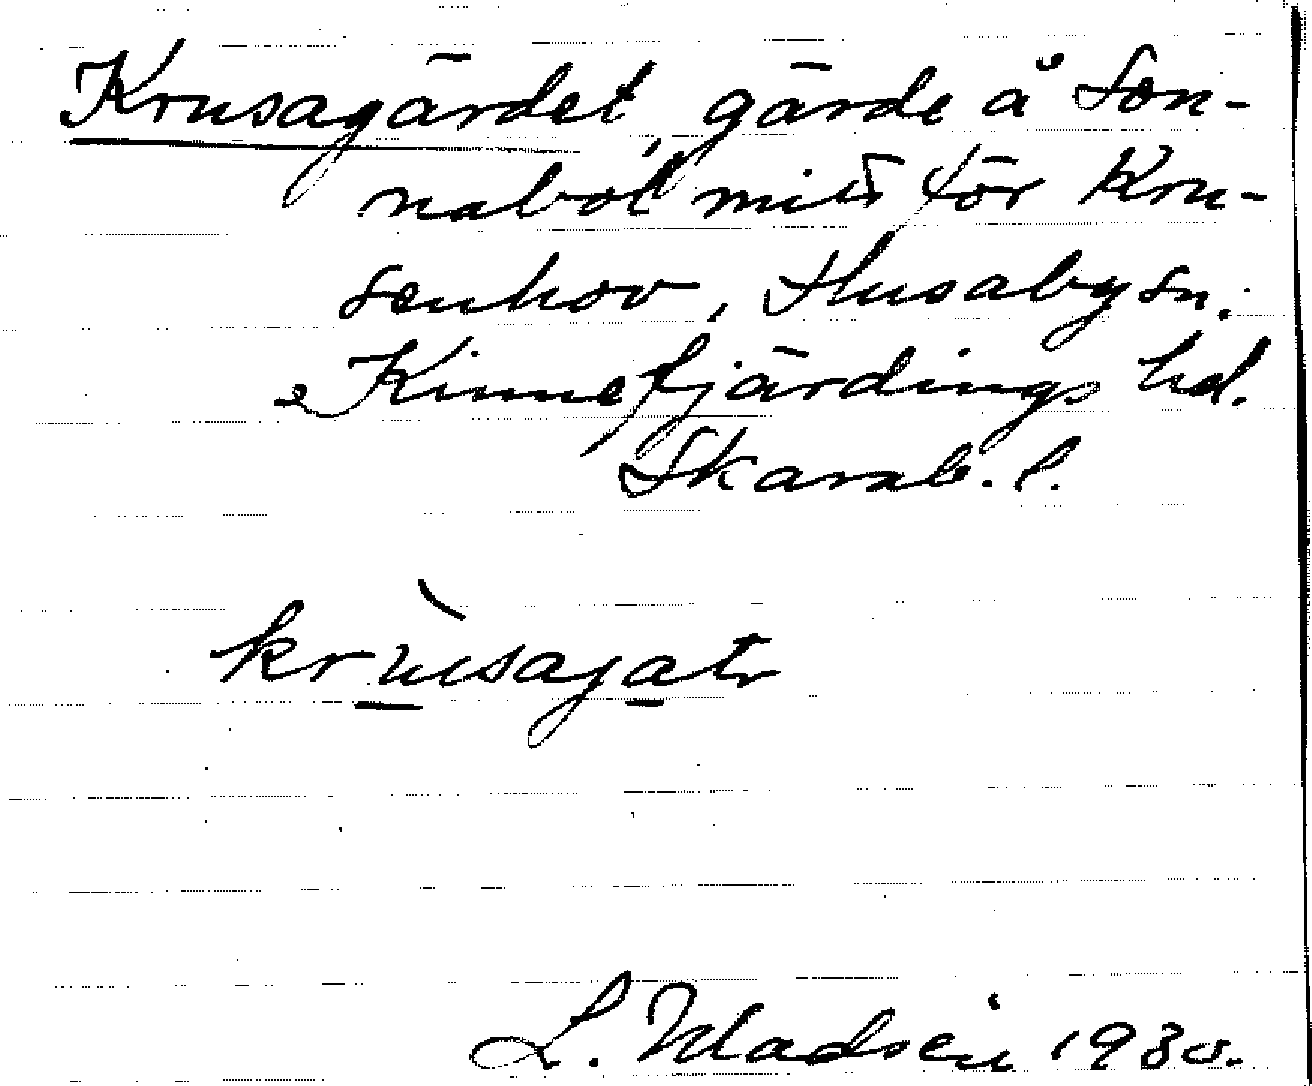 Krusagärdet, gärde å Son-
nabol mitt för Kru-
senhov, Husaby sn.
Kinnefjärdings hd.
Skarab. l.
L. Madsén 1930.